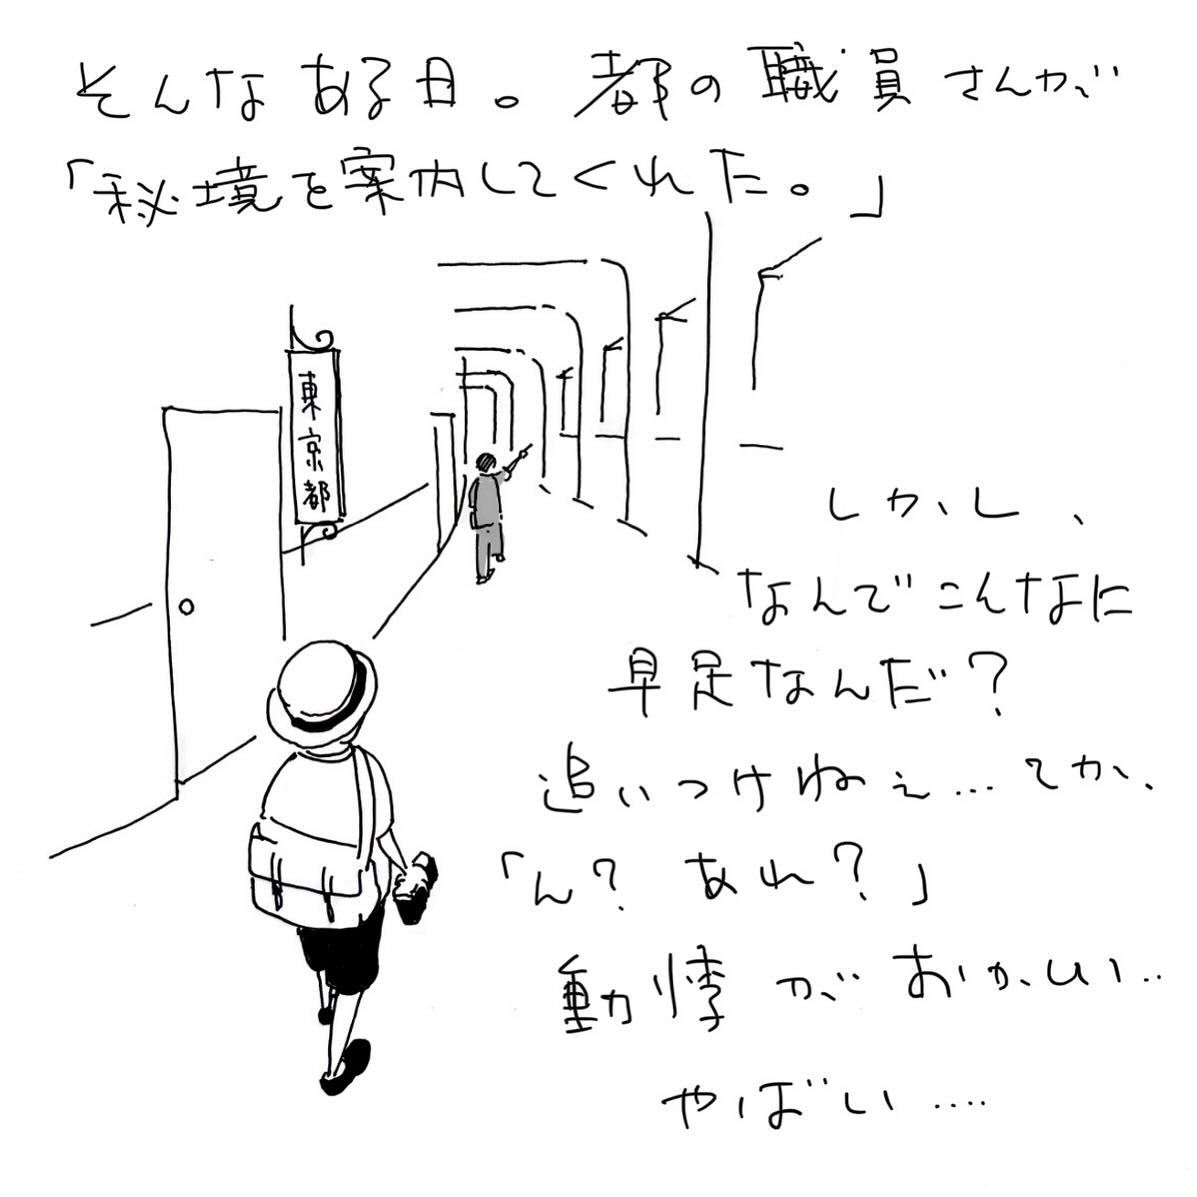 そんなある日。都の職員さんが
「秘境を案内してくれた。」
東京都
しかし、
なんでこんなに
早足なんだ?
追いつけねぇ…てか、
「ん? あれ?」
動悸がおかしい‥
やばい‥‥